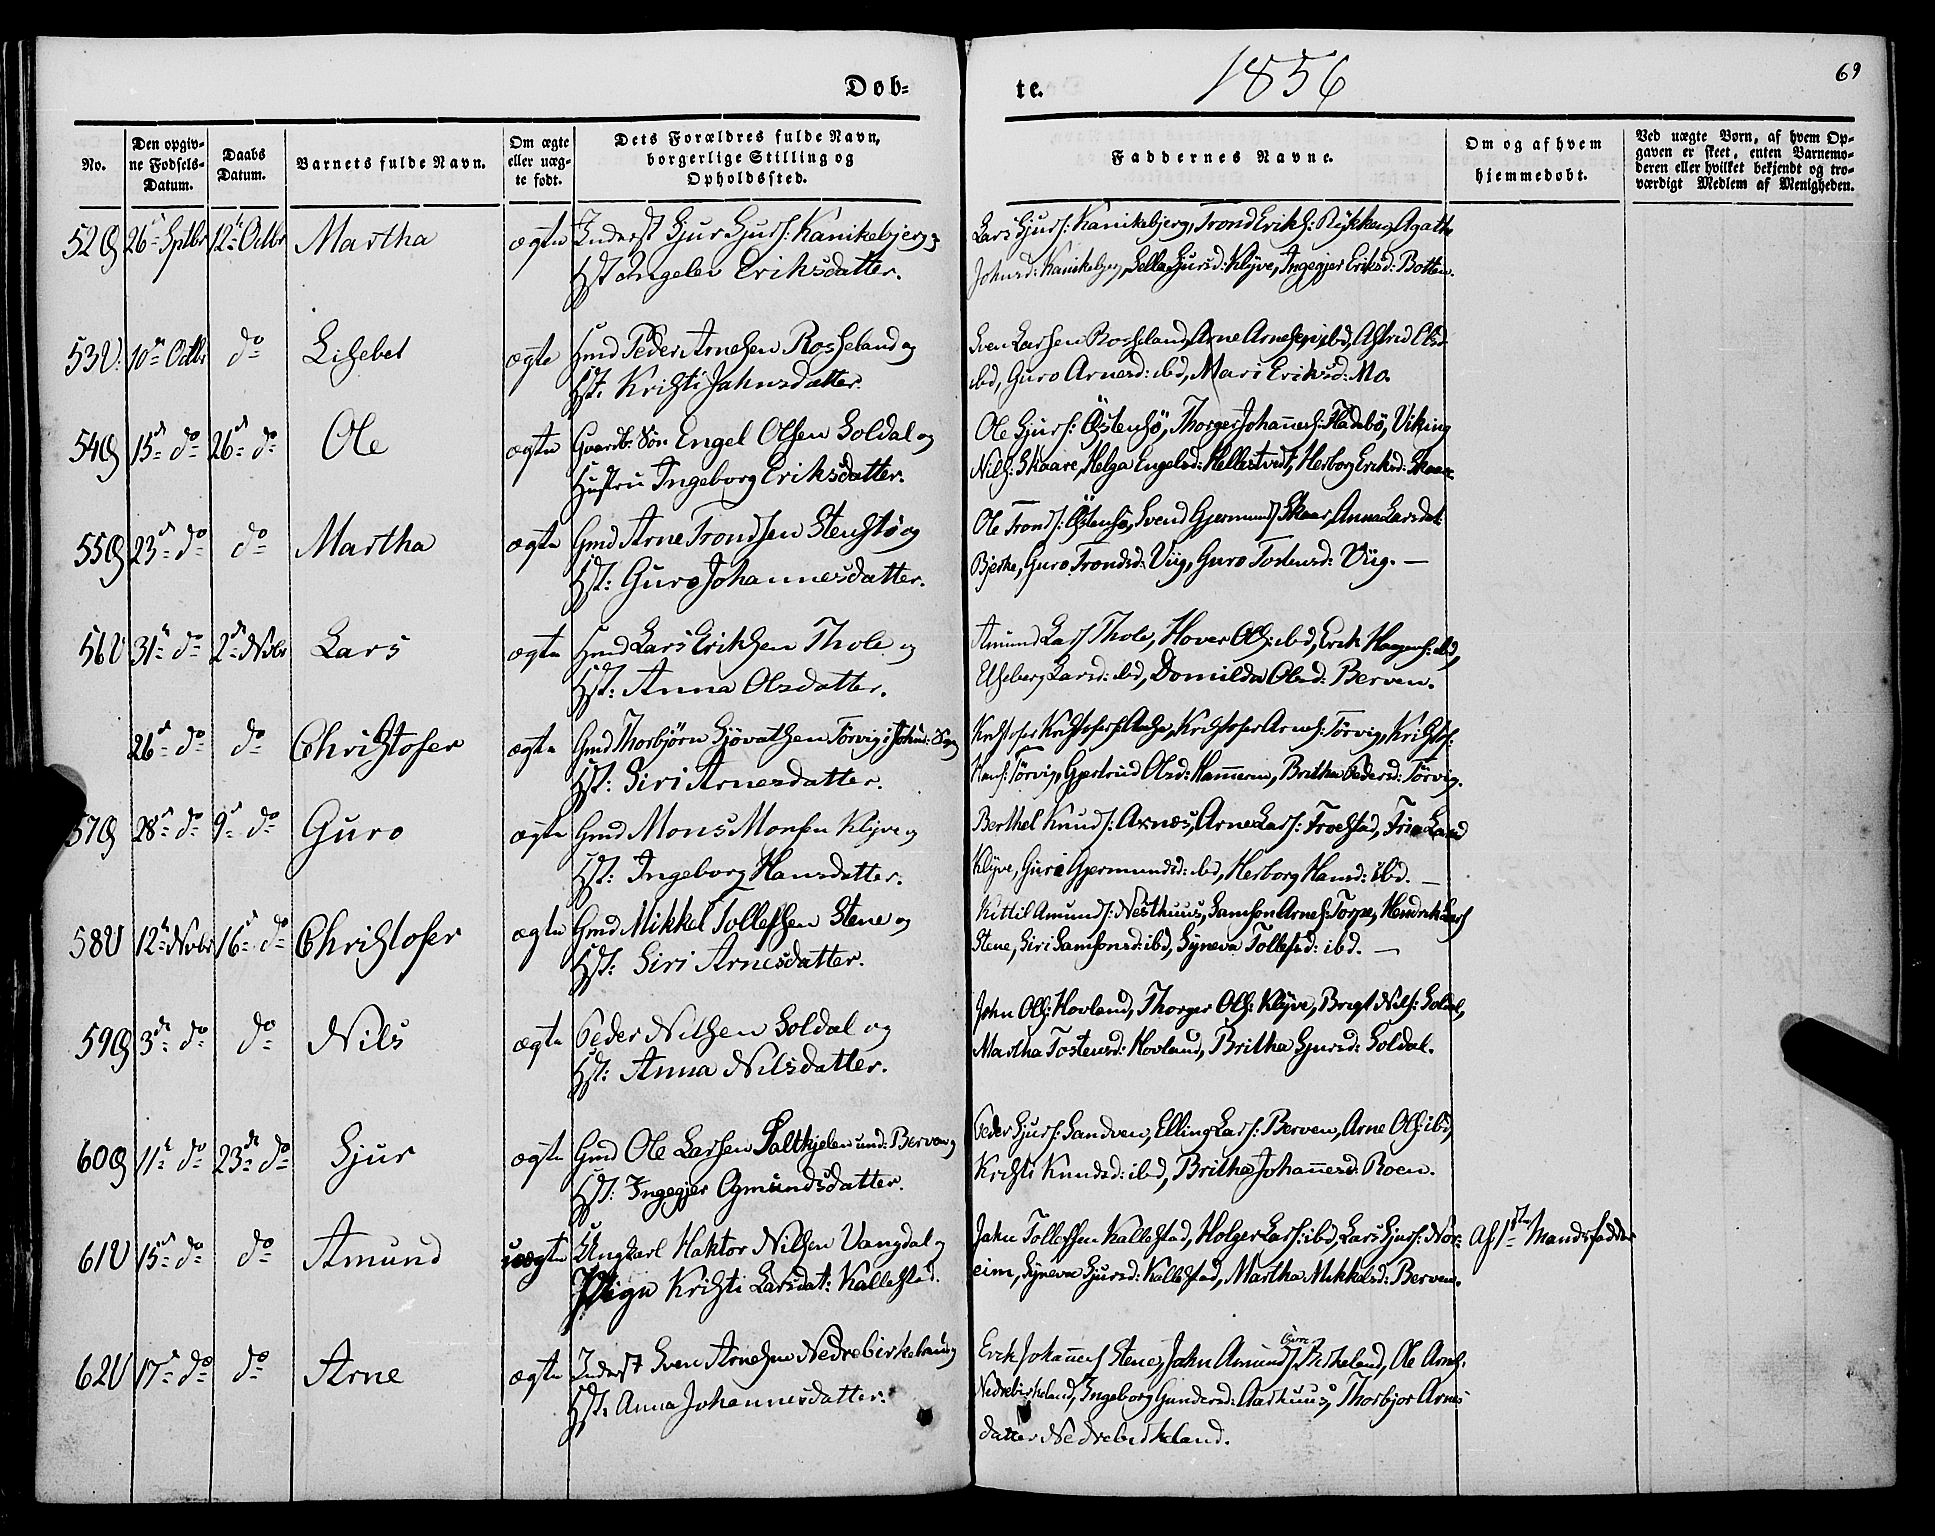 Døb-
te.
1856
69
No.
Den opgiv-
ne Fødsels-
Datum.
Daabs
Datum.
Barnets fulde Navn.
Om ægte
eller uæg-
te født.
Dets Forældres fulde Navn,
borgerlige Stilling og
Opholdssted.
Faddernes Navne.
Om og af hvem
hjemmedøbt.
Ved uægte Børn, af hvem Op-
gaven er skeet, enten Barnemo-
deren eller hvilket bekjendt og tro-
værdigt Medlem af Menigheden.
52 26 Sptbr 12 Octbr Martha ægte Inderst Sjur Sjurs: Kanikebjerg og
Hst Ingelev Eriksdatter.
Lars Sjurs: Kanikebjerg, Trond Eriks: Rykken, Agatha
Johnsd: Kanikebjerg, Sella Sjursd: Klyve, Ingegjer Eriksd: Botten.
53 U 10 Octbr do Lisebet ægte Gmd Peder Arnesen Rosseland og
Hst: Kristi Jahnsdatter.
Sven Larsen Rosseland, Arne Arnesen ibd, Astrid Olsd:
ibd, Guro Arnesd: ibd, Mari Eriksd: Mo.
54 15 do 26 do Ole ægte Gaardbr. Søn Engel Olsen Soldal og
Hustru Ingeborg Eriksdatter.
Ole Sjurs: Östensö, Thorger Johannes: Fladebö, Viking
Nils: Skaare, Helga Engelsd: Hellestvedt, Herborg Eriksd: Skaar.
55 23 do do Martha ægte Gmd Arne Trondsen Stenstø og
Hst: Guro Johannesdatter.
Ole Tronds: Östensö, Svend Gjermunds Skaar, Anna Larsdat:
Bjerke, Guro Trondsd: Viig, Guro Tostensd: Viig. —
56 U 31 do 2 Novbr Lars ægte Gmd Lars Eriksen Thole og
Hst: Anna Olsdatter.
Amund Lars Thole, Hover Ols: ibd, Erik Haagens: ibd,
Elseberg Larsd: ibd, Domilda Olsd: Berven.
26 do do Christofer ægte Gmd Thorbjörn Sjövatsen Törvig i Sogn
Hst: Siri Arnesdatter.
Kristofer Kristofers Aase, Kristofer Arnes: Törvig, Kristof:
Hans: Törvig, Gjertrud Olsd: Hammeren, Britha Pedersd: Törvig.
57 28 do 9 do Guro ægte Gmd Mons Monsen Klyve og
Hst: Ingeborg Hansdatter.
Berthel Knuds: Axnæs, Arne Lars: Froestad, Larsd
Klyve, Guri Gjermundsd: ibd, Herborg Hansd: ibd. —
58 U 12 Novbr 16 do Christofer ægte Gmd Mikkel Tollefsen Stene og
Hst: Siri Arnesdatter.
Kittil Amunds: Nesthuus, Samson Arnes: Torpe, Hendrik Lars
Stene, Siri Samsonsd: ibd, Syneva Tollefsd: ibd. —
59 3 do do Nils ægte Peder Nilsen Soldal og
Hst: Anna Nilsdatter.
John Ols: Hovland, Thorger Ols: Klyve, Brigt Nils: Soldal,
Martha Tostensd: Hovland, Britha Sjursd: Soldal.
60 11 do 23 do Sjur ægte Gmd Ole Larsen Saltkjelen und: Berven og
Hst: Ingegjer Ogmundsdatter.
Peder Sjurs: Sandven, Elling Lars: Berven, Arne Ols: ibd,
Kristi Knudsd: ibd, Britha Johannesd: Roen.
61 U 15 do do Amund uægte Ungkarl Haktor Nilsen Vangdal og
Pige Kristi Larsdat: Kallestad.
Jahn Tollefsen Kallestad, Holger Lars: ibd, Lars Sjurs: Nor-
eim, Syneva Sjursd: Kallestad, Martha Mikkelsd: Berven.
Af 1ste Mandsfadder
62 U 17 do do Arne ægte Inderst Sven Arnesen Nedrebirkeland og
Hst: Anna Johannesdatter.
Erik Johannes Stene, Jahn Amunds Övre Birkeland, Ole Arnes:
Nedrebirkeland, Ingeborg Gundersd: Aarhuus, Thorbjor Arnes
datter Nedrebirkeland.